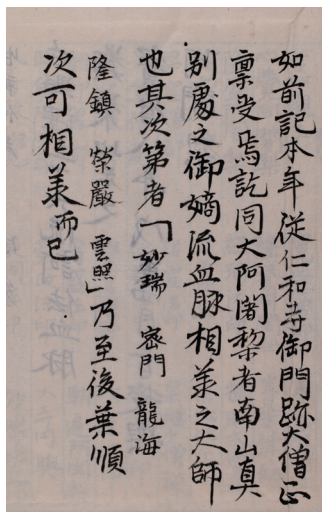 如前記本年從仁和寺御門跡大僧正
禀受焉訖同大阿闍梨者南山真
別處之御嫡流血脉相羕之大師
也其次第者「妙瑞 密門 龍海
隆鎮 榮嚴 雲照」乃至後葉順
次可相羕而已